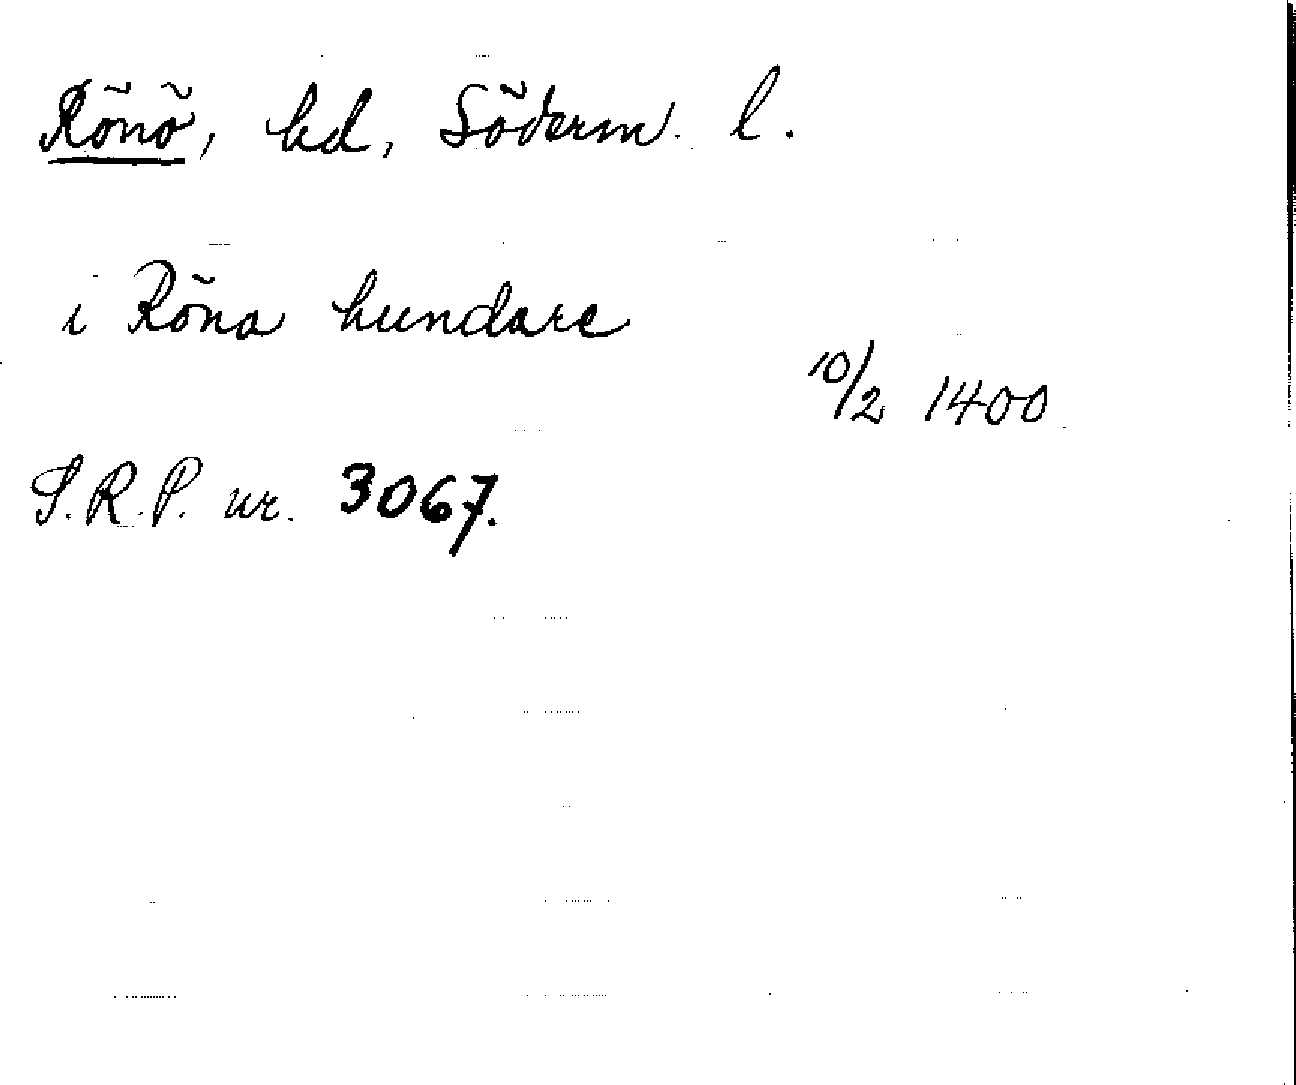 Rönö, hd, Söderm. l.
i Röna hundare
10/2 1400
S.R.P. nr. 3067.